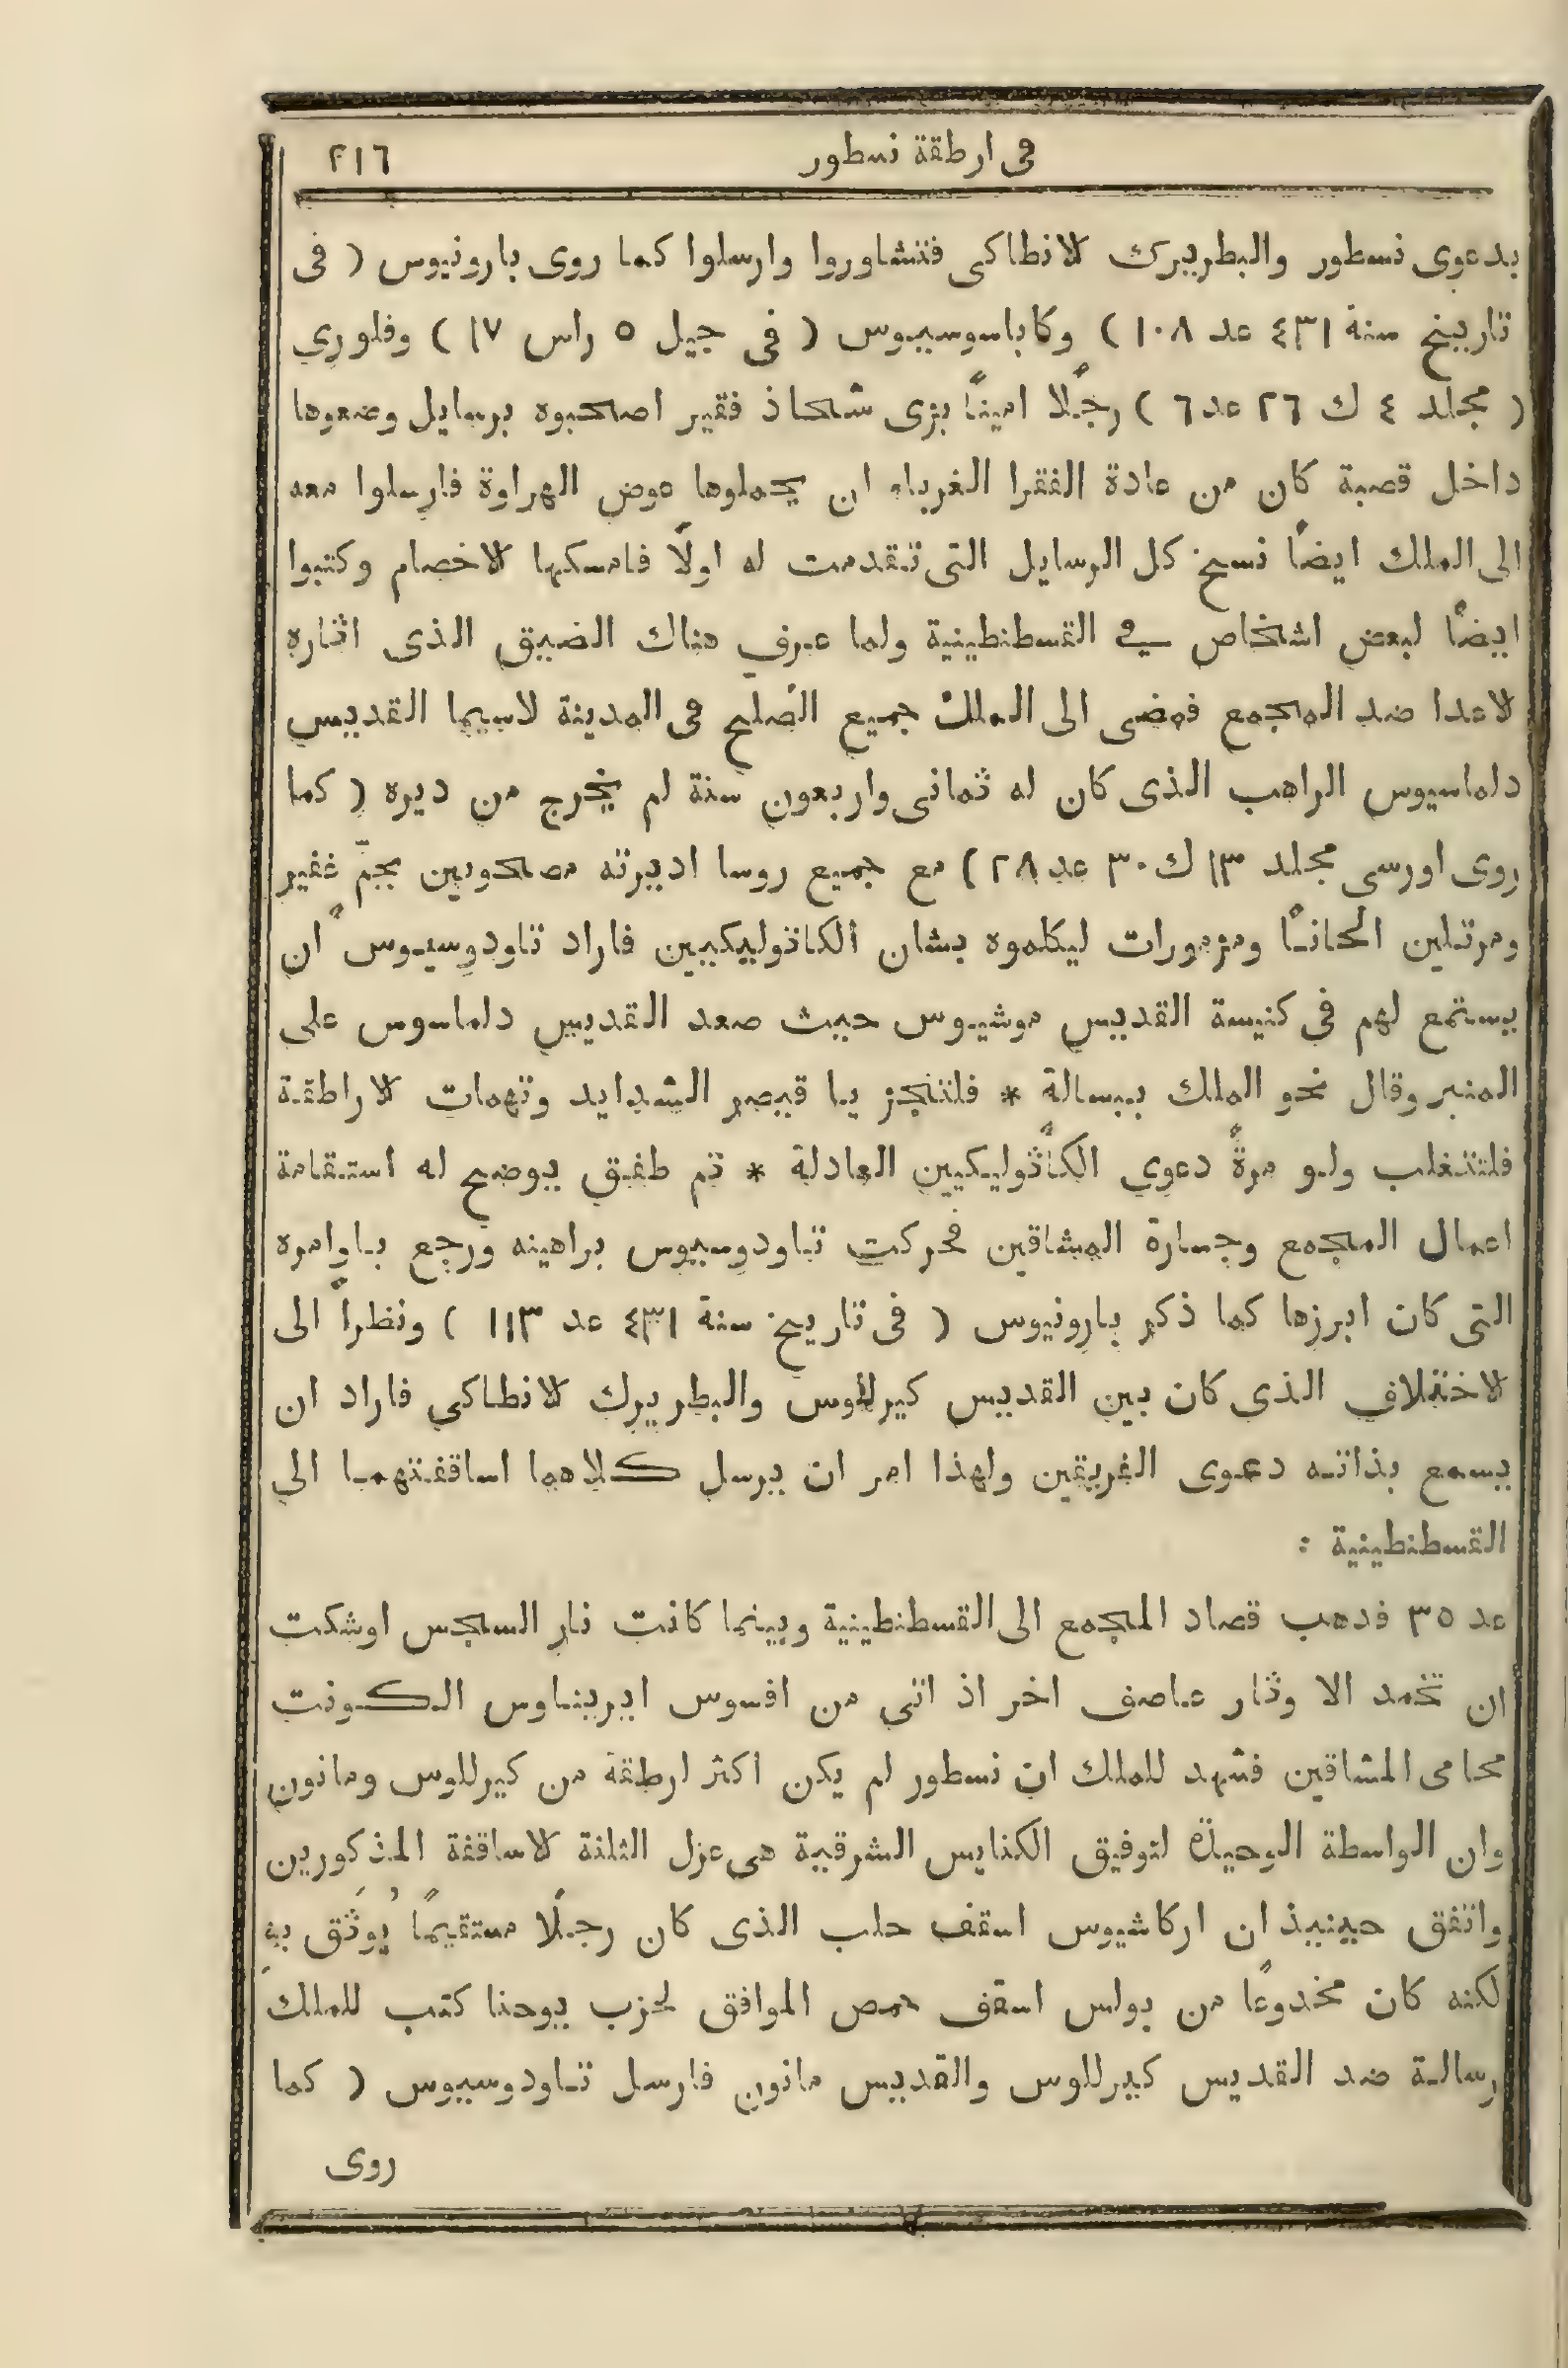 فى ارطقة نسطور ٢١٦
بدعوى نسطور والبطريرك لانطاكى فتشاوروا وارسلوا كما روى بارونيوس ( فى
تاريخ سنة ٤٣١ عد ١٠٨ ) وكاباسوسيوس ( فى جيل ٥ راس ١٧ ) وفلوري
( مجلد ٤ ك ٢٦ عد ٦ ) رجلًا امينًا بزى شحاذ فقير اصحبوه برسايل وضعوها
داخل قصبة كان من عادة الفقرا الغرباء ان يحملوها عوض الهراوة فارسلوا معه
الى الملك ايضًا نسخ كل الرسايل التى تقدمت له اولًا فامسكها لاخصام وكتبوا
ايضًا لبعض اشخاص في القسطنطينية ولما عرف هناك الضيق الذى اثاره
لاعدا ضد المجمع فمضى الى الملك جميع الصُلح فى المدينة لاسيما القديس
دلماسيوس الراهب الذى كان له ثمانى واربعون سنة لم يخرج من ديره ( كما
روى اورسى مجلد ١٣ ك ٣٠ عد ٢٨ ) مع جميع روسا اديرته مصحوبين بجمّ غفير
ومرتلين الحانًا ومزمورات ليكلموه بشان الكاثوليكيين فاراد تاودوسيوس ان
يستمع لهم فى كنيسة القديس موشيوس حيث صعد القديس دلماسوس على
المنبر وقال نحو الملك ببسالة * فلتنجز يا قيصر الشدايد وتهمات لاراطقة
فلتتغلب ولو مرةً دعوي الكاثوليكيين العادلة * ثم طفق يوضح له استقامة
اعمال المجمع وجسارة المشاقين فحركت تاودوسيوس براهينه ورجع باوامره
التى كان ابرزها كما ذكر بارونيوس ( فى تاريخ سنة ٤٣١ عد ١١٣ ) ونظرًا الى
لاختلاف الذى كان بين القديس كيرللوس والبطريرك لانطاكي فاراد ان
يسمع بذاته دعوى الفريقين ولهذا امر ان يرسل كلاهما اساقفتهما الي
القسطنطينية :
عد ٣٥ فدهب قصاد المجمع الى القسطنطينية وبينما كانت نار السجس اوشكت
ان تخمد الا وثار عاصف اخر اذ اتى من افسوس ايريناوس الكونت
محامى المشاقين فشهد للملك ان نسطور لم يكن اكثر ارطقة من كيرللوس ومانون
وان الواسطة الوحيدة لتوفيق الكنايس الشرقية هى عزل الثلثة لاساقفة المذكورين
واتفق حينيذ ان اركاشيوس اسقف حلب الذى كان رجلًا مستقيمًا يُوثَق بهِ
لكنه كان مخدوعًا من بولس اسقف حمص الموافق لحزب يوحنا كتب للملك
رسالة ضد القديس كيرللوس والقديس مانون فارسل تاودوسيوس ( كما
روى